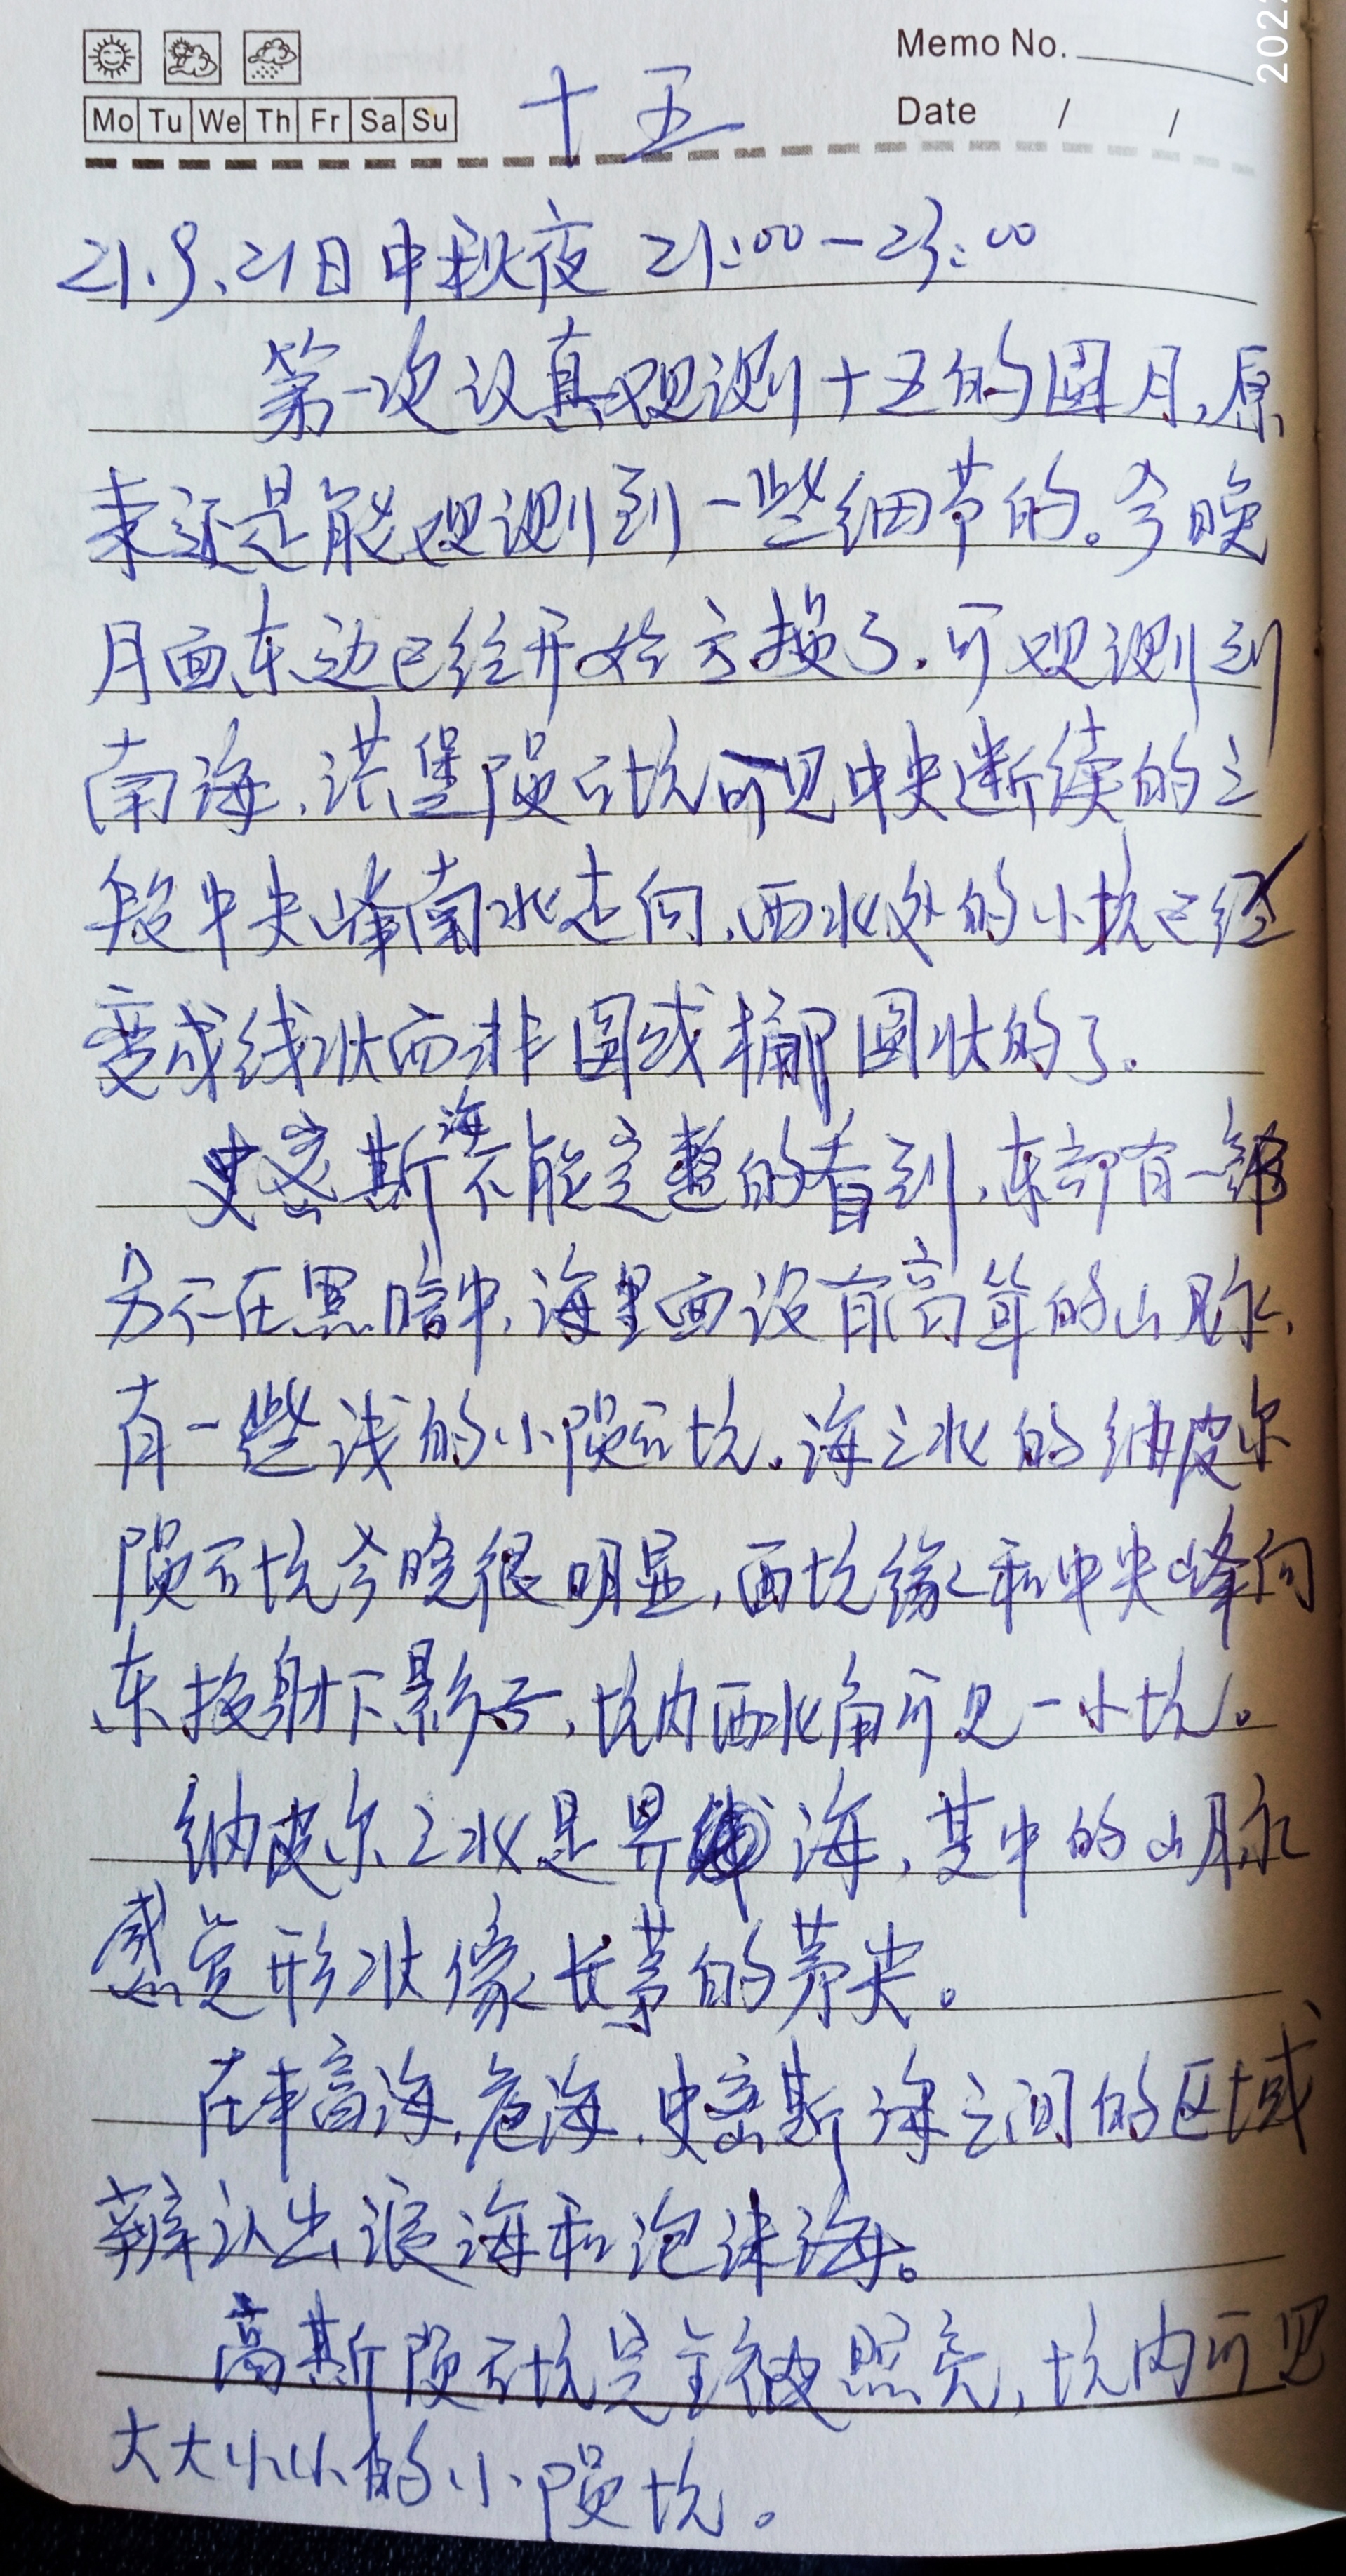 202
Memo No.
Mo Tu We Th Fr Sa Su
十五
Date / /
21.9.21日中秋夜 21:00-23:00
第一次认真观测十五的圆月,原
来还是能观测到一些细节的。今晚
月面东边已经开始亏损了.可观测到
南海.洪堡陨石坑可见中央断续的三
段中央峰南北走向.西北处的小坑已经
变成线状而非圆或椭圆状的了.
史密斯海不能完整的看到,东部有一部
分一在黑暗中.海里面没有高耸的山脉.
有一些浅的小陨石坑.海之北的纳皮尔
陨石坑今晚很明显,西坑缘和中央峰向
东投射下影子,坑内西北角可见一小坑。
纳皮尔之北是界海,其中的山脉
感觉形状像长茅的茅尖。
在丰富海.危海.史密斯海之间的区域
辨认出浪海和泡沫海。
高斯陨石坑完全被照亮,坑内可见
大大小小的小陨坑。